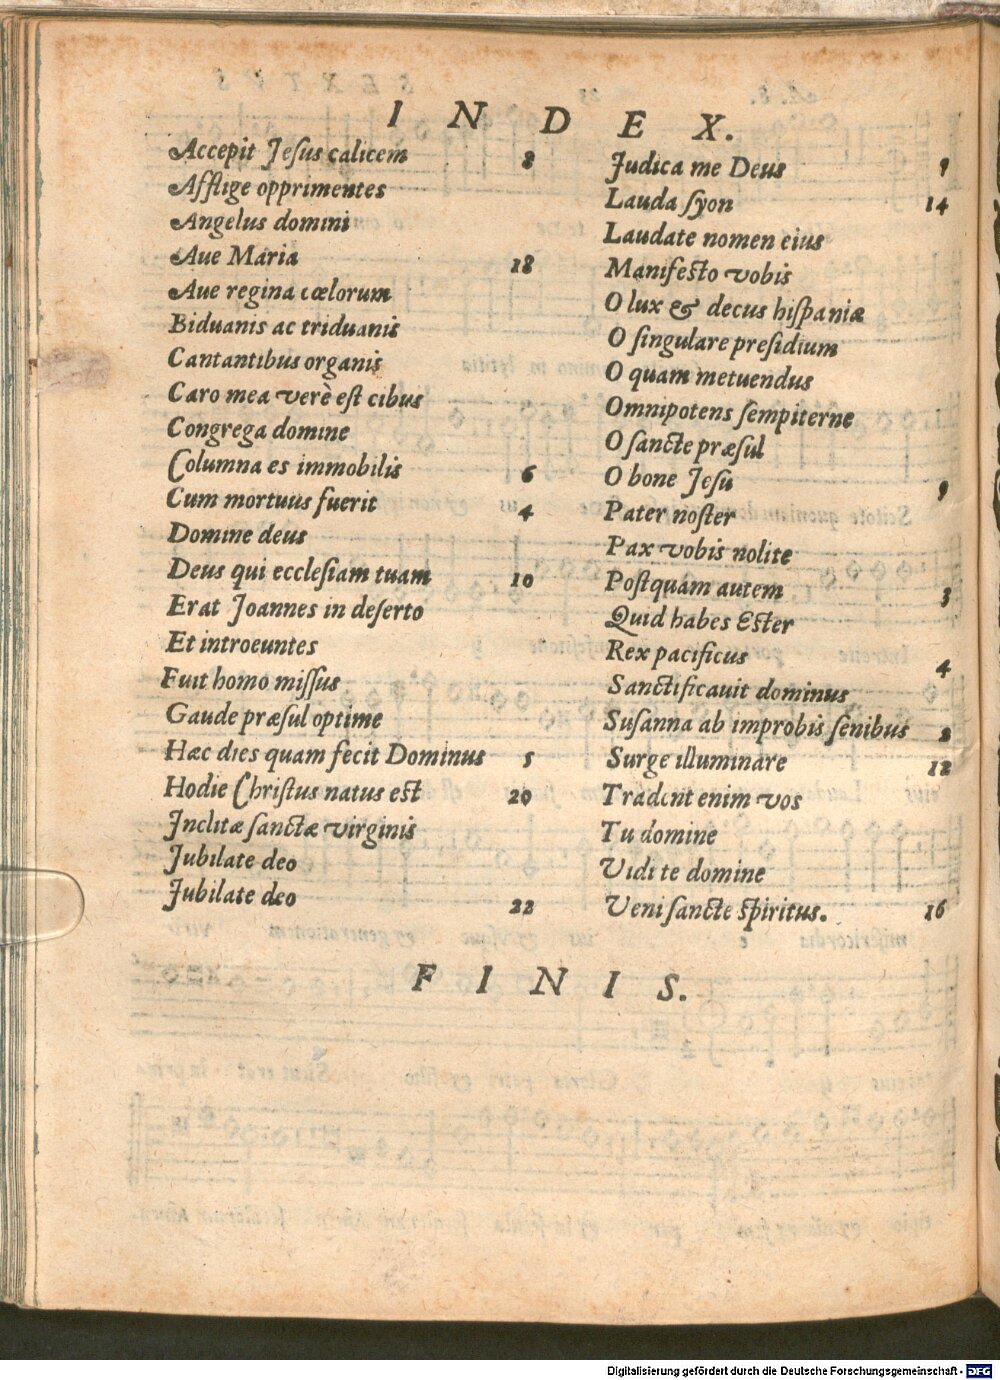 I N D E X.
Accepit Jesus calicem 8
Afflige opprimentes
Angelus domini
Aue Maria 18
Aue regina cœlorum
Biduanis ac triduanis
Cantantibus organis
Caro mea verè est cibus
Congrega domine
Columna es immobilis 6
Cum mortuus fuerit 4
Domine deus
Deus qui ecclesiam tuam 10
Erat Joannes in deserto
Et introeuntes
Fuit homo missus
Gaude præsul optime
Hæc dies quam fecit Dominus 5
Hodie Christus natus est 20
Inclitæ sanctæ virginis
Jubilate deo
Jubilate deo 22
Judica me Deus 9
Lauda syon 14
Laudate nomen eius
Manifesto vobis
O lux & decus hispaniæ
O singulare presidium
O quam metuendus
Omnipotens sempiterne
O sancte præsul
O bone Jesu 9
Pater noster
Pax vobis nolite
Postquam autem 3
Quid habes Ester
Rex pacificus 4
Sanctificauit dominus
Susanna ab improbis senibus 2
Surge illuminare 12
Tradent enim vos
Tu domine
Vidi te domine
Veni sancte spiritus. 16
F I N I S.
Digitalisierung gefördert durch die Deutsche Forschungsgemeinschaft - DFG